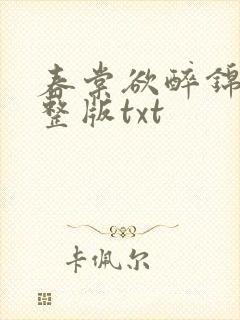 春棠欲醉锦
整版txt
卡佩尔